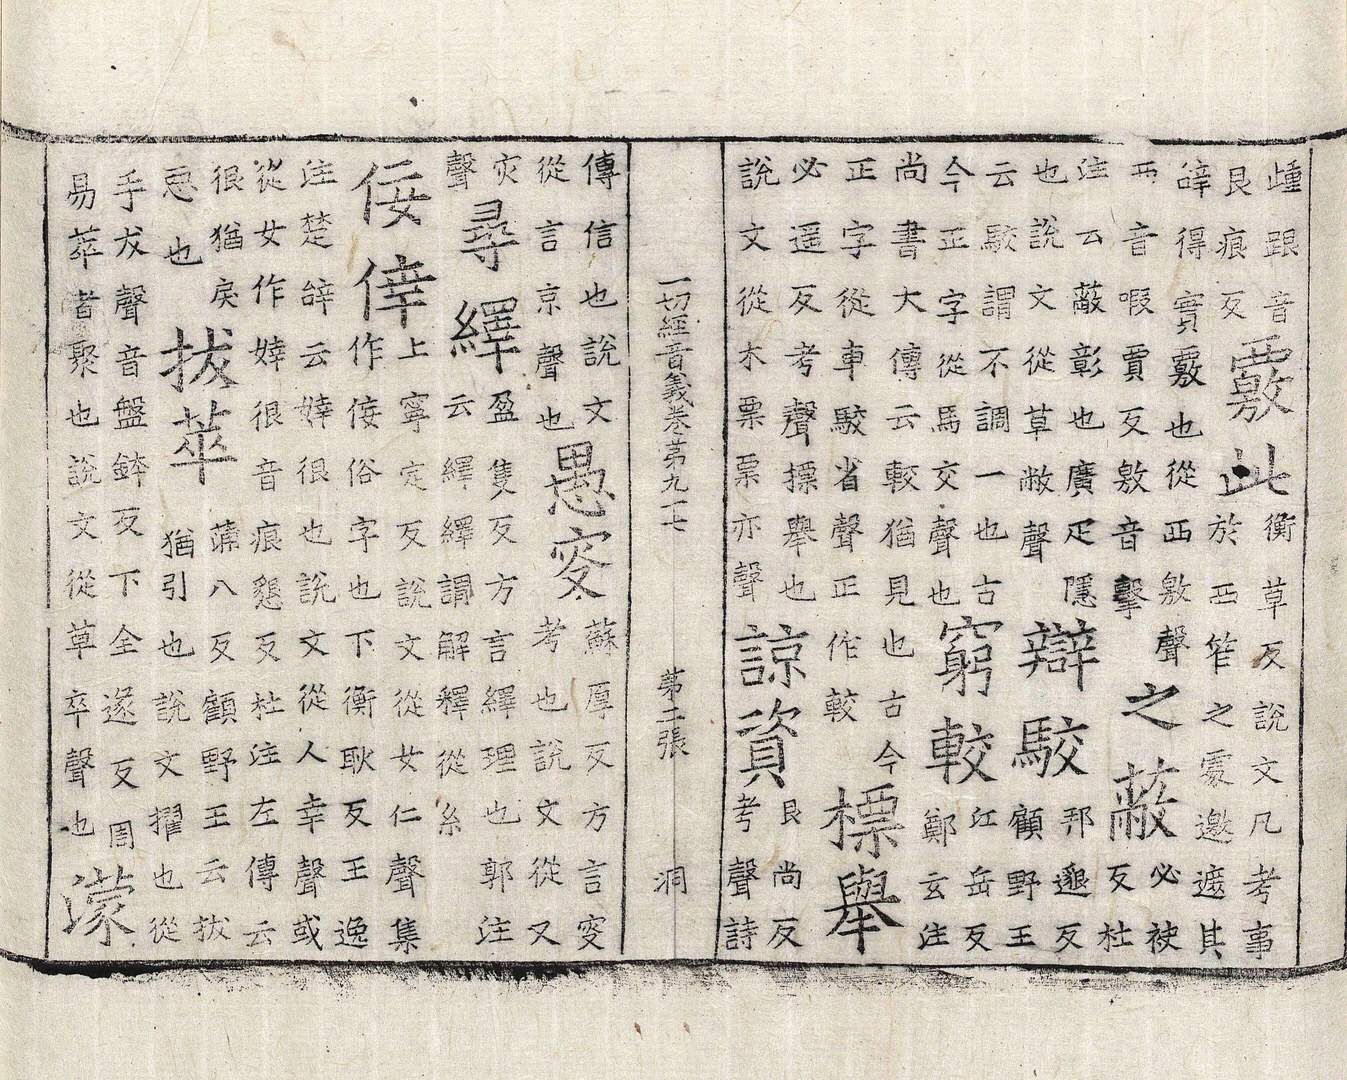 歱跟音
艮痕反
覈此
衡草反說文凡考事
於襾笮之處邀遮其
辝得實覈也從襾敫聲
襾音暇賈反敫音擊
之蔽
必袂
反杜
注云蔽彰也廣疋隱
也說文從草敝聲
辯駮
邦邈反
顧野王
云駮謂不調一也古
今正字從馬交聲也
窮較
江岳反
鄭玄注
尚書大傳云較猶見也古今
正字從車駮省聲正作較
標舉
必遥反考聲摽舉也
說文從木票票亦聲
諒資
艮尚反
考聲詩
一切經音義卷苐九十七 苐二張 洞
傳信也說文
從言京聲也
愚叜
蘇厚反方言叜
考也說文從又
灾
聲
尋繹
盈隻反方言繹理也郭注
云繹繹謂解釋從糸
佞倖
上寧定反說文從女仁聲集
作佞俗字也下衡耿反王逸
注楚辝云婞很也說文從人幸聲或
從女作婞很音痕懇反杜注左傳云
很猶戾
惡也
拔萃
蒲八反顧野王云拔
猶引也說文擢也從
手犮聲音盤鉢反下全遂反周
易萃者聚也說文從草卒聲也
濛